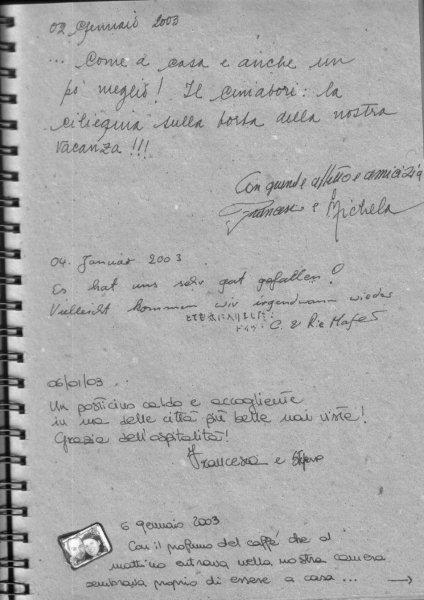 02 Gennaio 2003
... Come a casa e anche un
po' meglio! Il Cimabori: la
ciliegina sulla torta della nostra
vacanza!!!
Con grande affetto e amicizia
Francesco e Michela
04. Januar 2003
Es hat uns sehr gut gefallen!
Vielleicht kommen wir irgendwann wieder
とても気に入りました。
ドイツ: C. & Rie
06/01/03
Un posticino caldo e accogliente
in una delle città più belle mai viste!
Grazie dell'ospitalità!
Francesca e
6 gennaio 2003
Con il profumo del caffè che al
mattino entrava nella nostra camera
sembrava proprio di essere a casa ... →